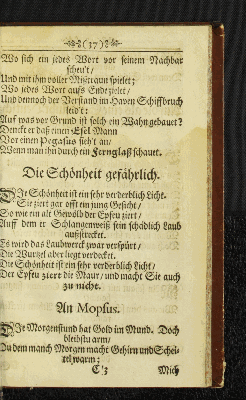 (17)
Wo sich ein jedes Wort vor seinem Nachbar
scheu't/
Und mit ihm voller Mißtraun spielet;
Wo jedes Wort aufs Ende zielet/
Und dennoch der Verstand im Haven Schiffbruch
leid't:
Auf was vor Grund ist solch ein Wahn gebauet?
Denckt er daß einen Esel Mann
Vor einen Pegasius sieh't an/
Wenn man ihn durch ein Fernglaß schauet.
Die Schönheit gefährlich.
DJe Schönheit ist ein sehr verderblich Licht.
Sie ziert gar offt ein jung Gesicht/
So wie ein alt Gewölb der Epfeu ziert/
Auf dem er Schlangenweiß sein schädlich Laub
aufstrecket.
Es wird das Laubwerck zwar verspürt/
Die Wurtzel aber liegt verdecket.
Die Schönheit ist ein sehr verderblich Licht/
Der Epfeu ziert die Maur/ und macht Sie auch
zu nichte.
An Mopsus.
DJe Morgenstund hat Gold im Mund. Doch
bleibstu arm/
Du dem manch Morgen macht Gehirn und Schei-
tel warm;
Mich